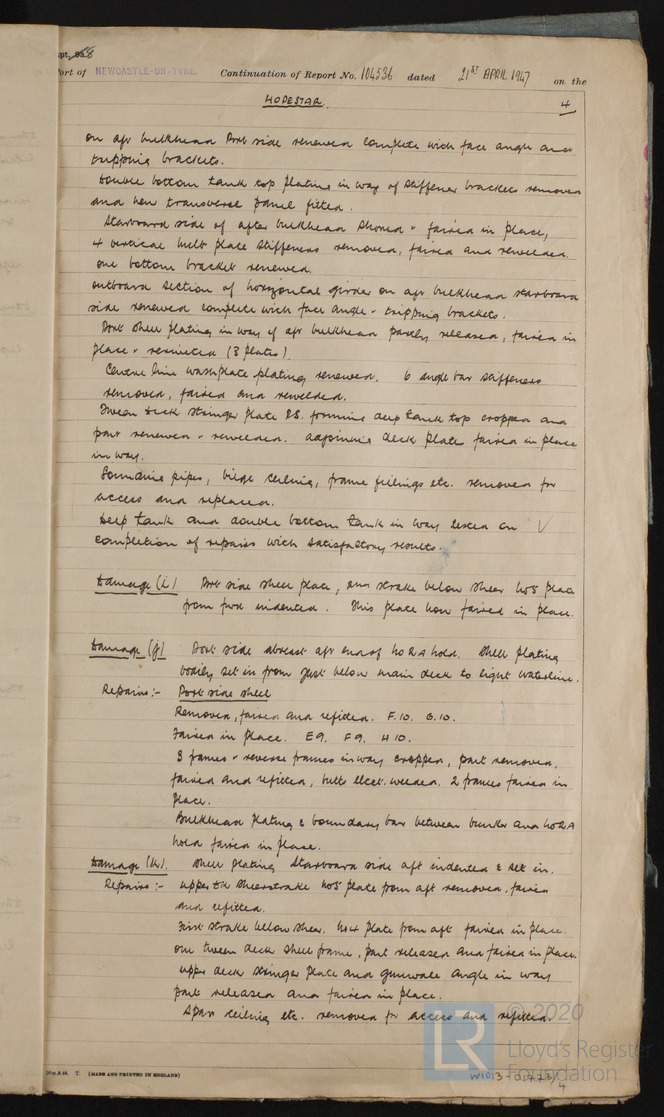 Rpt. No. 8
Port of NEWCASTLE-ON-TYNE. Continuation of Report No. 104536 dated 21ST APRIL 1947 on the
MODESTAR.
4
on aft bulkhead Port side renewed complete with face angle and
tripping brackets.
Double bottom tank top plating in way of stiffener brackets removed
and new transverse panel fitted.
Starboard side of after bulkhead shored & faired in place,
4 vertical built plate stiffeners removed, faired and rewelded.
one bottom bracket renewed.
outboard section of horizontal girder on aft bulkhead starboard
side renewed complete with face angle & tripping brackets.
Port shell plating in way of aft bulkhead partly released, faired in
place & reriveted (3 plates).
Centre line washplate plating renewed. 6 angle bar stiffeners
removed, faired and rewelded.
Tween deck stringer plate P.S. forming deep tank top cropped and
part renewed & rewelded. adjoining deck plate faired in place
in way.
Sounding pipes, bilge ceiling, frame fillings etc. removed for
access and replaced.
Deep tank and double bottom tank in way tested on
completion of repairs with satisfactory results.
Damage (i) Port side shell plate, 2nd strake below sheer No5 plate
from fwd indented. This plate now faired in place.
Damage (j) Port side abreast aft end of No 2A hold. Shell plating
bodily set in from just below main deck to light waterline.
Repairs:- Port side shell
Removed, faired and refitted. F.10. G.10.
Faired in place. E9. F9. H10.
3 frames & reverse frames in way cropped, part removed,
faired and refitted, butts elect. welded. 2 frames faired in
place.
Bulkhead plating & boundary bar between bunker and No2A
hold faired in place.
Damage (k). Shell plating starboard side aft indented & set in.
Repairs:- upper dk sheerstrake No5 plate from aft removed, faired
and refitted.
First strake below sheer. No4 plate from aft faired in place.
one tween deck shell frame, part released and faired in place.
upper deck stringer plate and gunwale angle in way
part released and faired in place.
Spar ceiling etc. removed for access and refitted.
© 2020
Lloyd's Register
Foundation
LR
T. (MADE AND PRINTED IN ENGLAND)